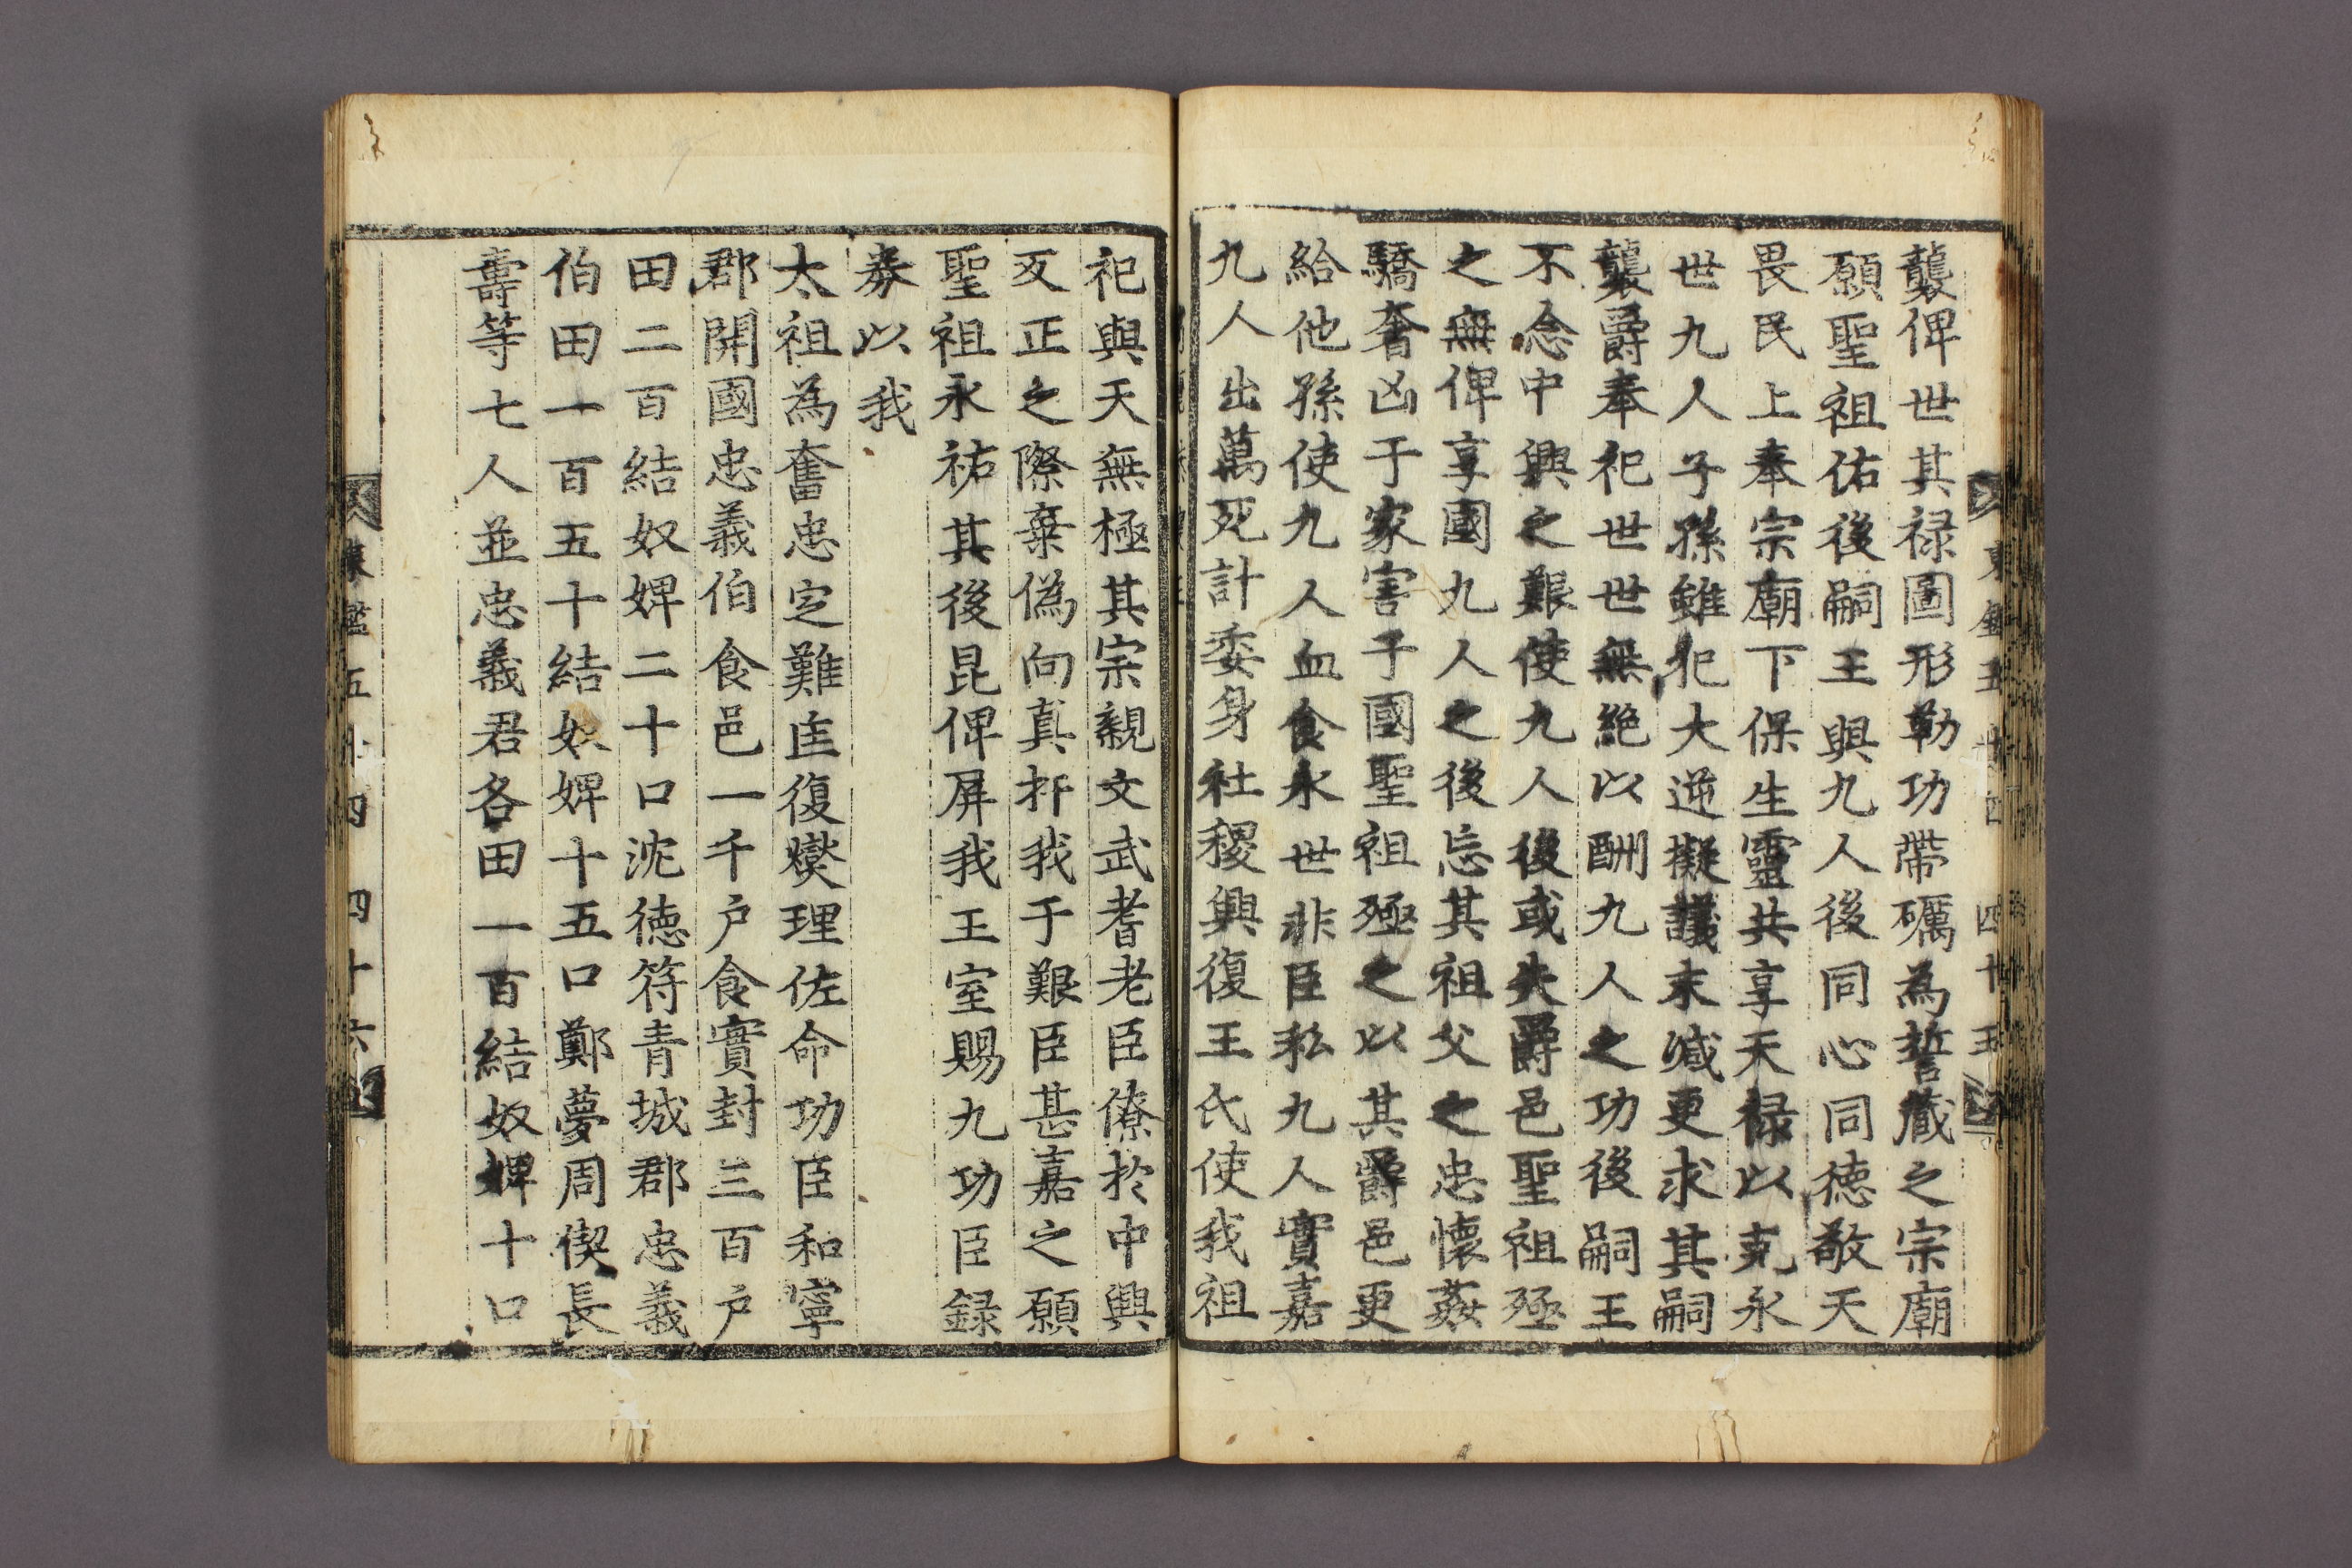 襲俾世其禄圖形勒功帶礪為誓藏之宗廟
願聖祖佑後嗣王與九人後同心同徳敬天
畏民上奉宗廟下保生靈共享天禄以克永
世九人子孫雖犯大逆擬議末减更求其嗣
襲爵奉祀世世無絶以酬九人之功後嗣王
不念中興之艱使九人後或失爵邑聖祖殛
之無俾享國九人之後忘其祖父之忠懷姦
驕奢凶于家害于國聖祖殛之以其爵邑更
給他孫使九人血食永世非臣私九人實嘉
九人出萬死計委身社稷興復王氏使我祖
祀與天無極其宗親文武耆老臣僚於中興
反正之際棄偽向真扞我于艱臣甚嘉之願
聖祖永祐其後昆俾屏我王室賜九功臣録
券以我
太祖為奮忠定難匡復燮理佐命功臣和寧
郡開國忠義伯食邑一千户食實封三百户
田二百結奴婢二十口沈徳符青城郡忠義
伯田一百五十結奴婢十五口鄭夢周偰長
壽等七人並忠義君各田一百結奴婢十口
東鑑五十四 四十六